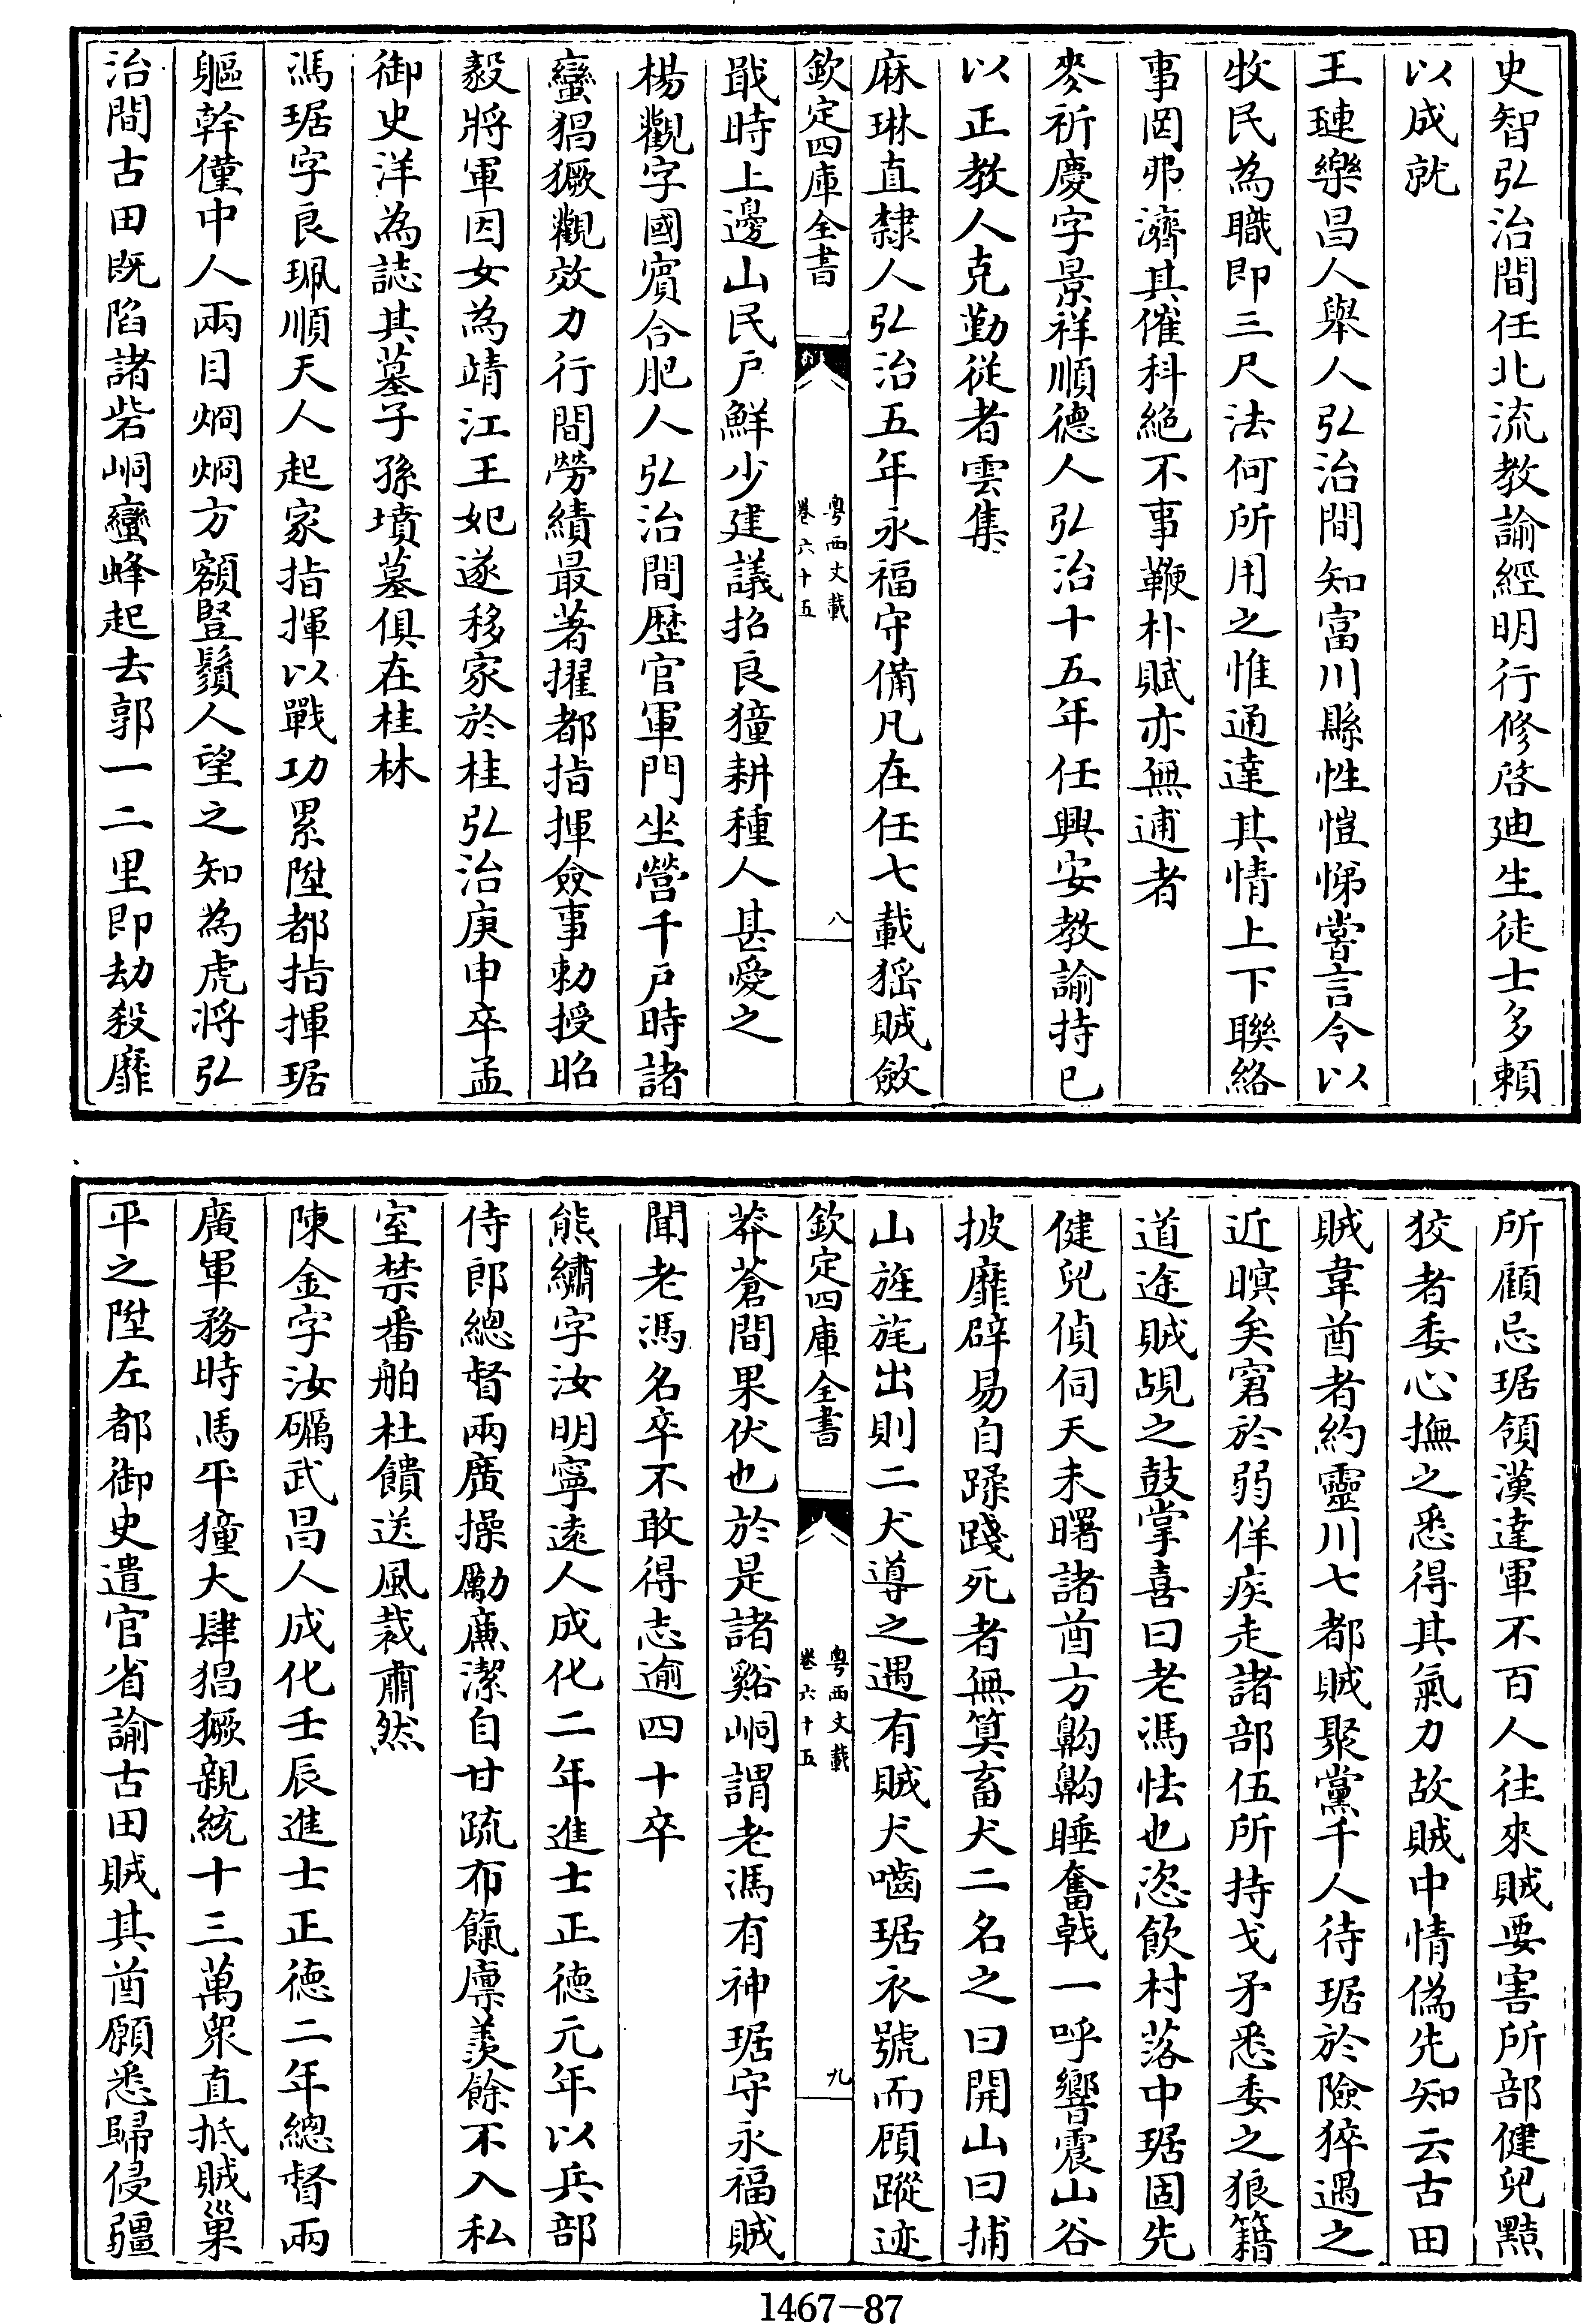 史智弘治間任北流教諭經明行修啓廸生徒士多頼
以成就
王璉樂昌人舉人弘治間知富川縣性愷悌嘗言令以
牧民為職即三尺法何所用之惟通達其情上下聯絡
事罔弗濟其催科絶不事鞭朴賦亦無逋者
麥祈慶字景祥順德人弘治十五年任興安教諭持已
以正教人克勤從者雲集
麻琳直隸人弘治五年永福守備凡在任七載猺賊斂
欽定四庫全書
粵西文載
卷六十五
八
戢時上邊山民户鮮少建議招良獞耕種人甚愛之
楊觀字國賓合肥人弘治間歴官軍門坐營千戸時諸
蠻猖獗觀效力行間勞績最著擢都指揮僉事勅授昭
毅將軍因女為靖江王妃遂移家於桂弘治庚申卒孟
御史洋為誌其墓子孫墳墓俱在桂林
馮琚字良珮順天人起家指揮以戰功累陞都指揮琚
軀幹僅中人兩目烱烱方額豎鬚人望之知為虎將弘
治間古田既陷諸砦峒蠻蜂起去郭一二里即劫殺靡
所顧忌琚領漢達軍不百人往來賊要害所部健兒黠
狡者委心撫之悉得其氣力故賊中情偽先知云古田
賊韋酋者約靈川七都賊聚黨千人待琚於險猝遇之
近瞑矣窘於弱佯疾走諸部伍所持戈矛悉委之狼籍
道途賊覘之鼓掌喜曰老馮怯也恣飲村落中琚固先
健兒偵伺天未曙諸酋方齁齁睡奮戟一呼響震山谷
披靡辟易自蹂踐死者無筭畜犬二名之曰開山曰捕
山旌旄出則二犬導之遇有賊犬嚙琚衣號而頎蹤迹
欽定四庫全書
粵西文載
卷六十五
九
莽蒼間果伏也於是諸谿峒謂老馮有神琚守永福賊
聞老馮名卒不敢得志逾四十卒
熊繡字汝明寧遠人成化二年進士正德元年以兵部
侍郎總督兩廣操勵廉潔自甘疏布餼廩羨餘不入私
室禁番舶杜饋送風裁肅然
陳金字汝礪武昌人成化壬辰進士正德二年總督兩
廣軍務時馬平獞大肆猖獗親統十三萬衆直抵賊巢
平之陞左都御史遣官省諭古田賊其酋願悉歸侵疆
1467-87